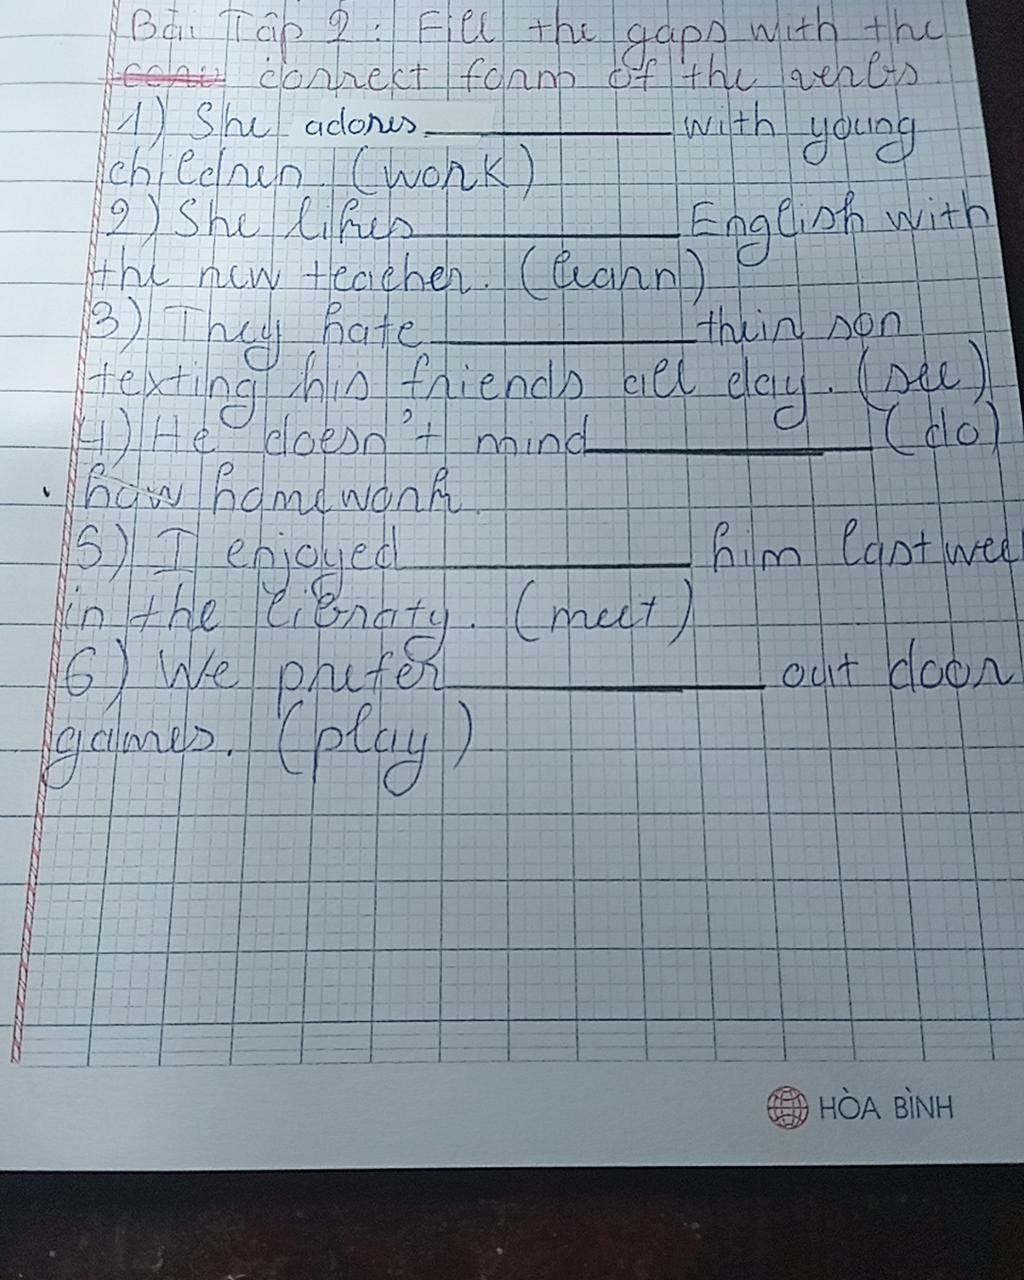 Bài Tập 2: Fill the gaps with the
correct form of the verbs
1) She adores ____________ with young
children. (work)
2) She likes ____________ English with
the new teacher. (learn)
3) They hate ____________ their son
texting his friends all day. (see)
4) He doesn't mind ____________ (do)
homework.
5) I enjoyed ____________ him last wee
in the library. (meet)
6) We prefer ____________ out door
games. (play)
HÒA BÌNH